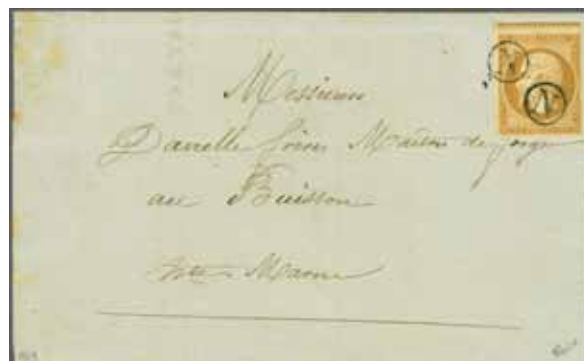 N
N
Messieurs
Danelle frères Maîtres de forges
au Buisson
Hte Marne